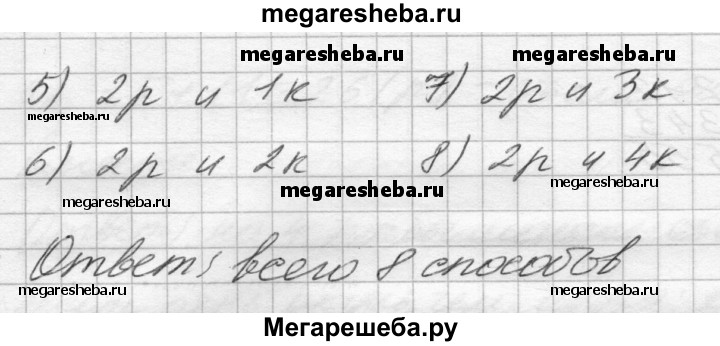 megaresheba.ru
megaresheba.ru megaresheba.ru
5) 2р и 1к 7) 2р и 3к
megaresheba.ru
6) 2р и 2к 8) 2р и 4к
megaresheba.ru megaresheba.ru megaresheba.ru
Ответ: всего 8 способов
megaresheba.ru megaresheba.ru
Мегарешеба.ру